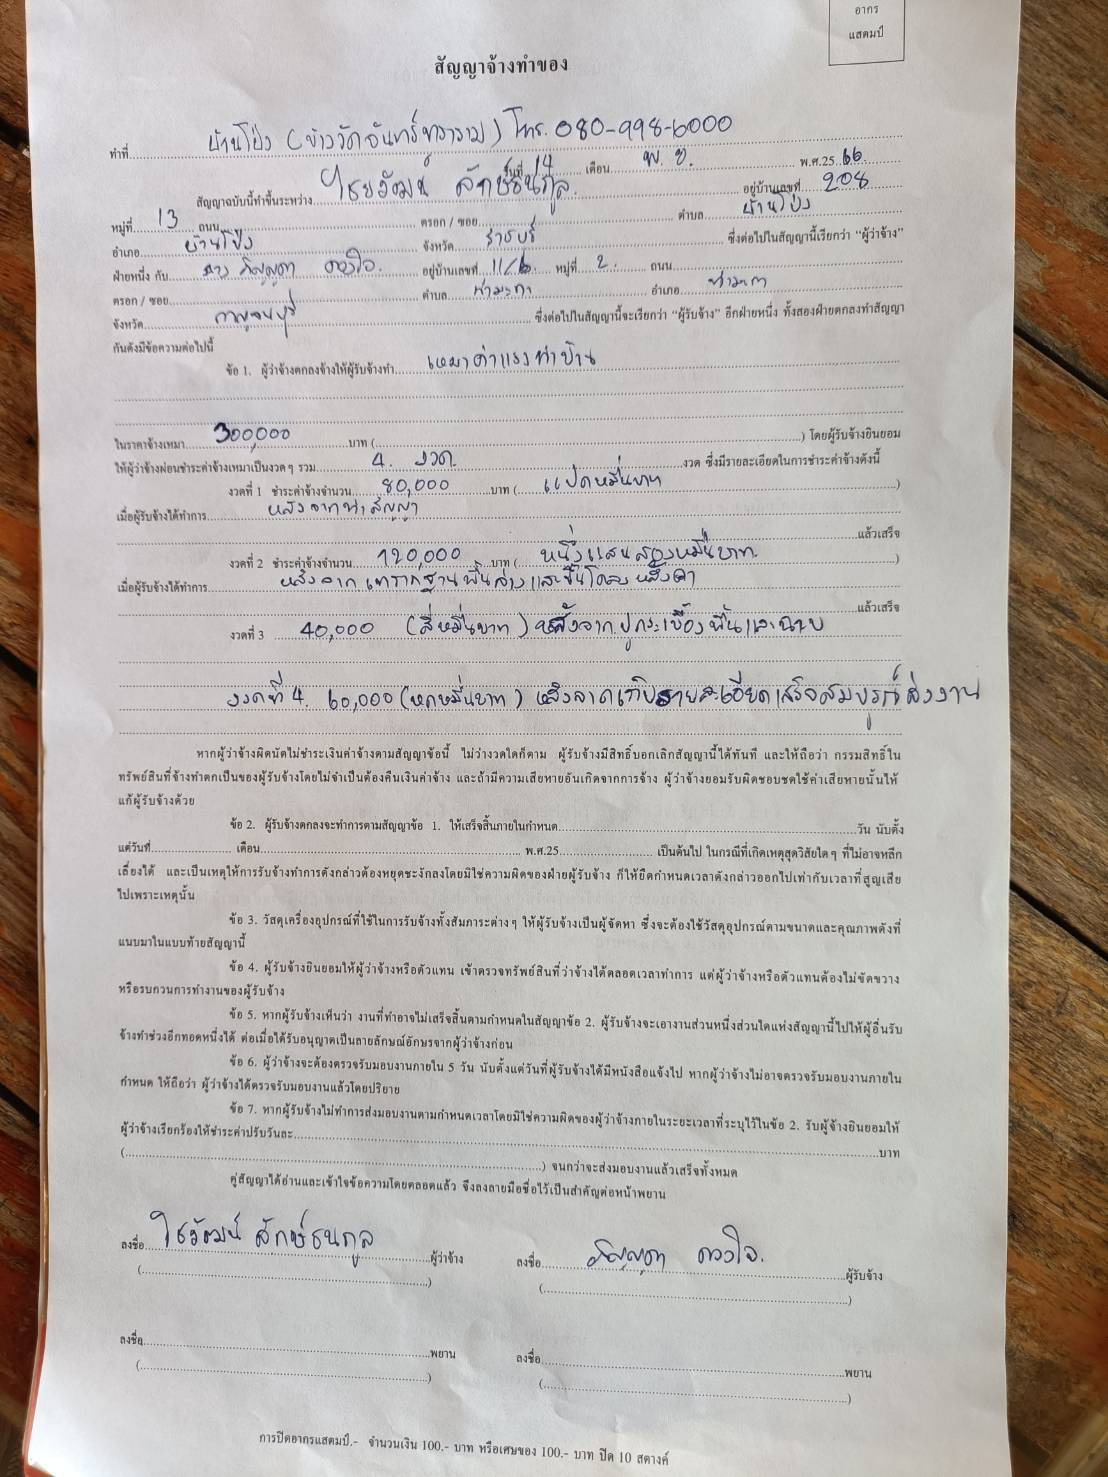 อากร
แสตมป์
สัญญาจ้างทำของ
ทำที่ บ้านโป่ง (ข้างวัดจันทร์ทาราม) โทร. 080-998-6000
วันที่ 14 เดือน พ.ย. พ.ศ.25 66
สัญญาฉบับนี้ทำขึ้นระหว่าง ไชยวัฒน์ ลักษ์ธนกูล อยู่บ้านเลขที่ 208
หมู่ที่ 13 ถนน ตรอก / ซอย ตำบล บ้านโป่ง
อำเภอ บ้านโป่ง จังหวัด ราชบุรี ซึ่งต่อไปในสัญญานี้เรียกว่า “ผู้ว่าจ้าง”
ฝ่ายหนึ่ง กับ นาง ภิญญดา ดวงใจ อยู่บ้านเลขที่ 11/6 หมู่ที่ 2 ถนน
ตรอก / ซอย ตำบล ท่ามะกา อำเภอ ท่ามะกา
จังหวัด กาญจนบุรี ซึ่งต่อไปในสัญญานี้จะเรียกว่า “ผู้รับจ้าง” อีกฝ่ายหนึ่ง ทั้งสองฝ่ายตกลงทำสัญญา
กันดังมีข้อความต่อไปนี้
ข้อ 1. ผู้ว่าจ้างตกลงจ้างให้ผู้รับจ้างทำ เหมาค่าแรงทำบ้าน
ในราคาจ้างเหมา 300,000 บาท ( ) โดยผู้รับจ้างยินยอม
ให้ผู้ว่าจ้างผ่อนชำระค่าจ้างเหมาเป็นงวดๆ รวม 4. งวด. งวด ซึ่งมีรายละเอียดในการชำระค่าจ้างดังนี้
งวดที่ 1 ชำระค่าจ้างจำนวน 80,000 บาท ( แปดหมื่นบาท )
เมื่อผู้รับจ้างได้ทำการ หลังจากทำสัญญา
แล้วเสร็จ
งวดที่ 2 ชำระค่าจ้างจำนวน 120,000 บาท ( หนึ่งแสนสองหมื่นบาท. )
เมื่อผู้รับจ้างได้ทำการ หลังจากเทรากฐานพื้นล่างและขึ้นโครงหลังคา
แล้วเสร็จ
งวดที่ 3 40,000 (สี่หมื่นบาท) หลังจากปูกระเบื้องพื้นและฉาบ
งวดที่ 4. 60,000 (หกหมื่นบาท) หลังจากเก็บรายละเอียดเสร็จสมบูรณ์ส่งงาน
หากผู้ว่าจ้างผิดนัดไม่ชำระเงินค่าจ้างตามสัญญาข้อนี้ ไม่ว่างวดใดก็ตาม ผู้รับจ้างมีสิทธิ์บอกเลิกสัญญานี้ได้ทันที และให้ถือว่า กรรมสิทธิ์ใน
ทรัพย์สินที่จ้างทำตกเป็นของผู้รับจ้างโดยไม่จำเป็นต้องคืนเงินค่าจ้าง และถ้ามีความเสียหายอันเกิดจากการจ้าง ผู้ว่าจ้างยอมรับผิดชอบชดใช้ค่าเสียหายนั้นให้
แก่ผู้รับจ้างด้วย
ข้อ 2. ผู้รับจ้างตกลงจะทำการตามสัญญาข้อ 1. ให้เสร็จสิ้นภายในกำหนด วัน นับตั้ง
แต่วันที่ เดือน พ.ศ.25 เป็นต้นไป ในกรณีที่เกิดเหตุสุดวิสัยใดๆ ที่ไม่อาจหลีก
เลี่ยงได้ และเป็นเหตุให้การรับจ้างทำการดังกล่าวต้องหยุดชะงักลงโดยมิใช่ความผิดของฝ่ายผู้รับจ้าง ก็ให้ยืดกำหนดเวลาดังกล่าวออกไปเท่ากับเวลาที่สูญเสีย
ไปเพราะเหตุนั้น
ข้อ 3. วัสดุเครื่องอุปกรณ์ที่ใช้ในการรับจ้างทั้งสัมภาระต่างๆ ให้ผู้รับจ้างเป็นผู้จัดหา ซึ่งจะต้องใช้วัสดุอุปกรณ์ตามขนาดและคุณภาพดังที่
แนบมาในแบบท้ายสัญญานี้
ข้อ 4. ผู้รับจ้างยินยอมให้ผู้ว่าจ้างหรือตัวแทน เข้าตรวจทรัพย์สินที่ว่าจ้างได้ตลอดเวลาทำการ แต่ผู้ว่าจ้างหรือตัวแทนต้องไม่ขัดขวาง
หรือรบกวนการทำงานของผู้รับจ้าง
ข้อ 5. หากผู้รับจ้างเห็นว่า งานที่ทำอาจไม่เสร็จสิ้นตามกำหนดในสัญญาข้อ 2. ผู้รับจ้างจะเอางานส่วนหนึ่งส่วนใดแห่งสัญญานี้ไปให้ผู้อื่นรับ
จ้างทำช่วงอีกทอดหนึ่งได้ ต่อเมื่อได้รับอนุญาตเป็นลายลักษณ์อักษรจากผู้ว่าจ้างก่อน
ข้อ 6. ผู้ว่าจ้างจะต้องตรวจรับมอบงานภายใน 5 วัน นับตั้งแต่วันที่ผู้รับจ้างได้มีหนังสือแจ้งไป หากผู้ว่าจ้างไม่อาจตรวจรับมอบงานภายใน
กำหนด ให้ถือว่า ผู้ว่าจ้างได้ตรวจรับมอบงานแล้วโดยปริยาย
ข้อ 7. หากผู้รับจ้างไม่ทำการส่งมอบงานตามกำหนดเวลาโดยมิใช่ความผิดของผู้ว่าจ้างภายในระยะเวลาที่ระบุไว้ในข้อ 2. รับผู้จ้างยินยอมให้
ผู้ว่าจ้างเรียกร้องให้ชำระค่าปรับวันละ บาท
( ) จนกว่าจะส่งมอบงานแล้วเสร็จทั้งหมด
คู่สัญญาได้อ่านและเข้าใจข้อความโดยตลอดแล้ว จึงลงลายมือชื่อไว้เป็นสำคัญต่อหน้าพยาน
ลงชื่อ ไชวัฒน์ ลักษ์ธนกูล ผู้ว่าจ้าง ลงชื่อ ภิญญดา ดวงใจ. ผู้รับจ้าง
( ) ( )
ลงชื่อ พยาน ลงชื่อ พยาน
( ) ( )
การปิดอากรแสตมป์.- จำนวนเงิน 100.- บาท หรือเศษของ 100.- บาท ปิด 10 สตางค์